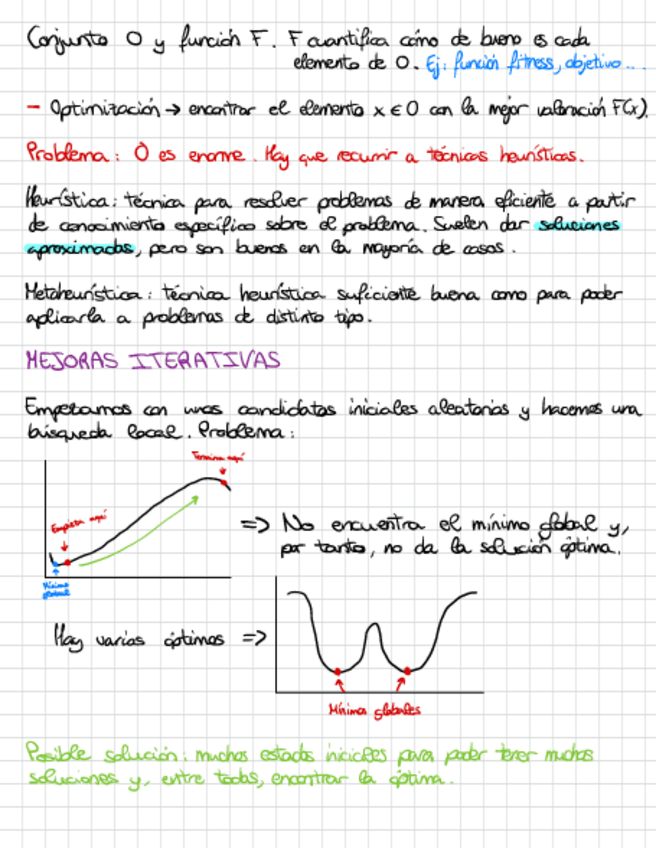 Conjunto O y función F. F cuantifica cómo de bueno es cada
elemento de O. Ej: función fitness, objetivo...
- Optimización → encontrar el elemento x ∈ O con la mejor valoración F(x).
Problema: O es enorme. Hay que recurrir a técnicas heurísticas.
Heurística: técnica para resolver problemas de manera eficiente a partir
de conocimiento específico sobre el problema. Suelen dar soluciones
aproximadas, pero son buenas en la mayoría de casos.
Metaheurística: técnica heurística suficiente buena como para poder
aplicarla a problemas de distinto tipo.
MEJORAS ITERATIVAS
Empezamos con unos candidatos iniciales aleatorios y hacemos una
búsqueda local. Problema:
Termina aquí
Empieza aquí
=> No encuentra el mínimo global y,
por tanto, no da la solución óptima.
Mínimo
global
Hay varios óptimos =>
Mínimos globales
Posible solución: muchos estados iniciales para poder tener muchas
soluciones y, entre todas, encontrar la óptima.